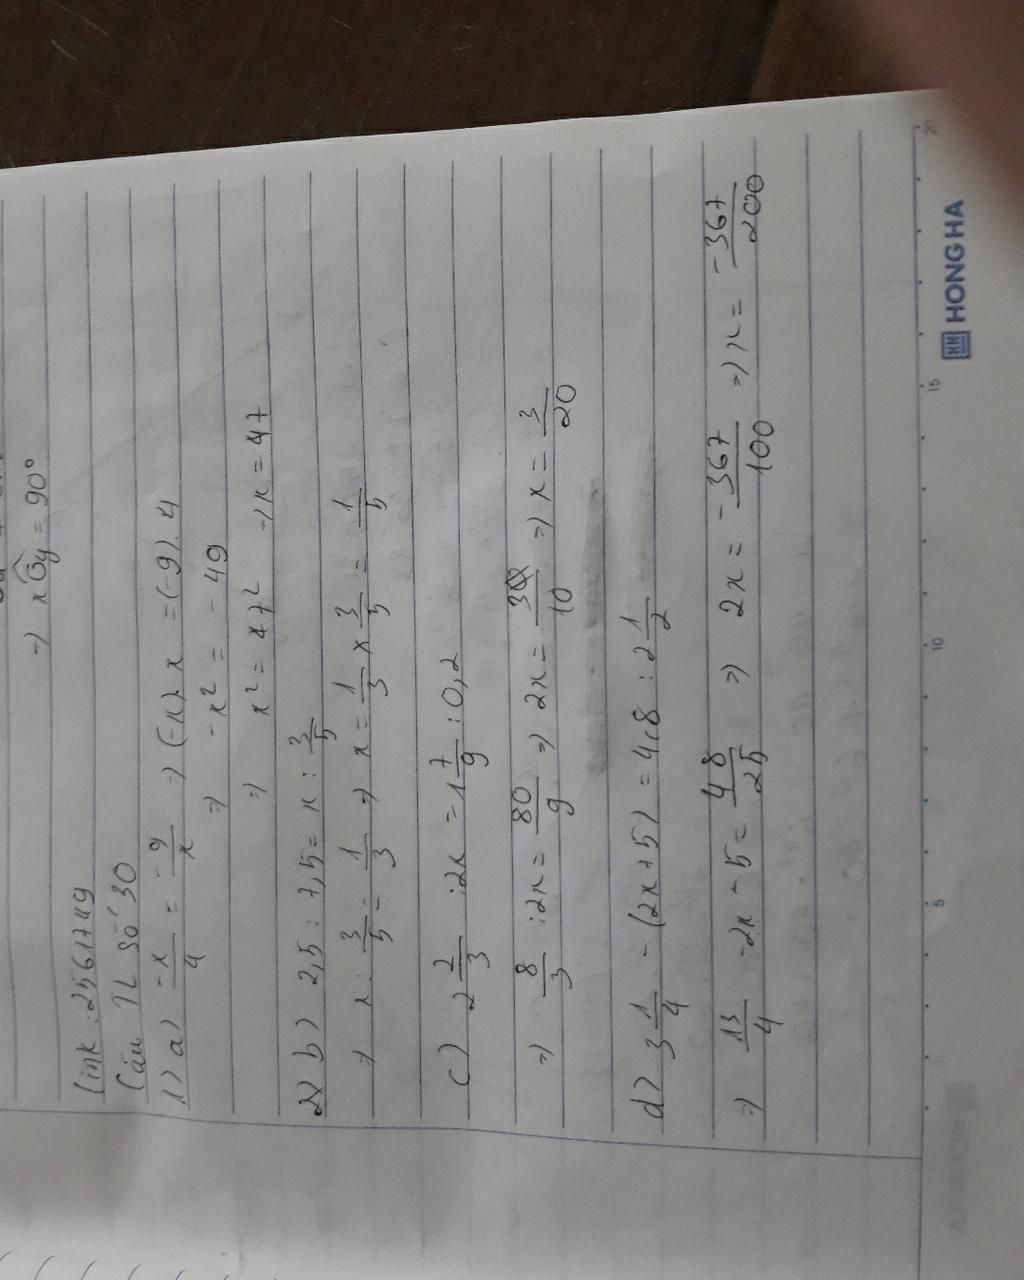 =) xÔy = 90°
link : 2561749
Câu TL số 30
1) a) -x/4 = -9/x =) (-x).x = (-9).4
=) -x² = -49
=) x² = ±7² =) x = ±7
2) b) 2,5 : 7,5 = x : 3/5
=) x : 3/5 = 1/3 =) x = 1/3 x 3/5 = 1/5
c) 2 2/3 : 2x = 1 7/9 : 0,2
=) 8/3 : 2x = 80/9 =) 2x = 3/10 =) x = 3/20
d) 3 1/4 - (2x+5) = 4,8 : 2 1/2
=) 13/4 - 2x - 5 = 48/25 =) 2x = -367/100 =) x = -367/200
5 10 15 20
HH HONG HA